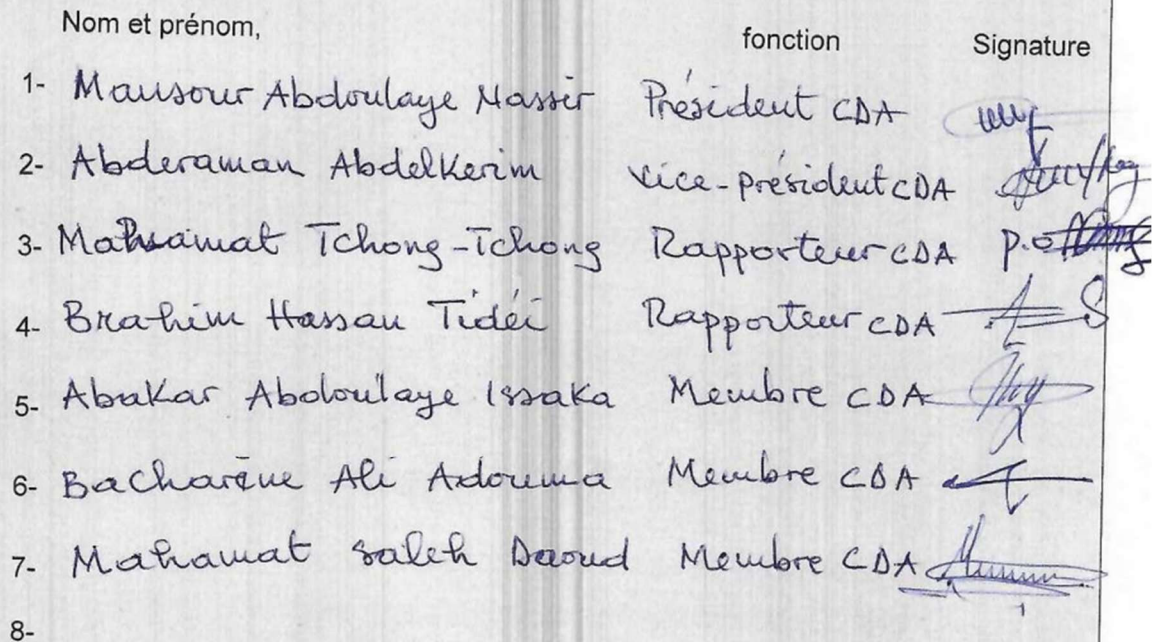 Nom et prénom, fonction Signature
1- Mansour Abdoulaye Nassir Président CDA
2- Abderaman Abdelkerim Vice-président CDA
3- Mahamat Tchong-Tchong Rapporteur CDA p.o
4- Brahim Hassan Tidéi Rapporteur CDA
5- Abakar Abdoulaye Issaka Membre CDA
6- Bacharène Ali Adouma Membre CDA
7- Mahamat Saleh Daoud Membre CDA
8-